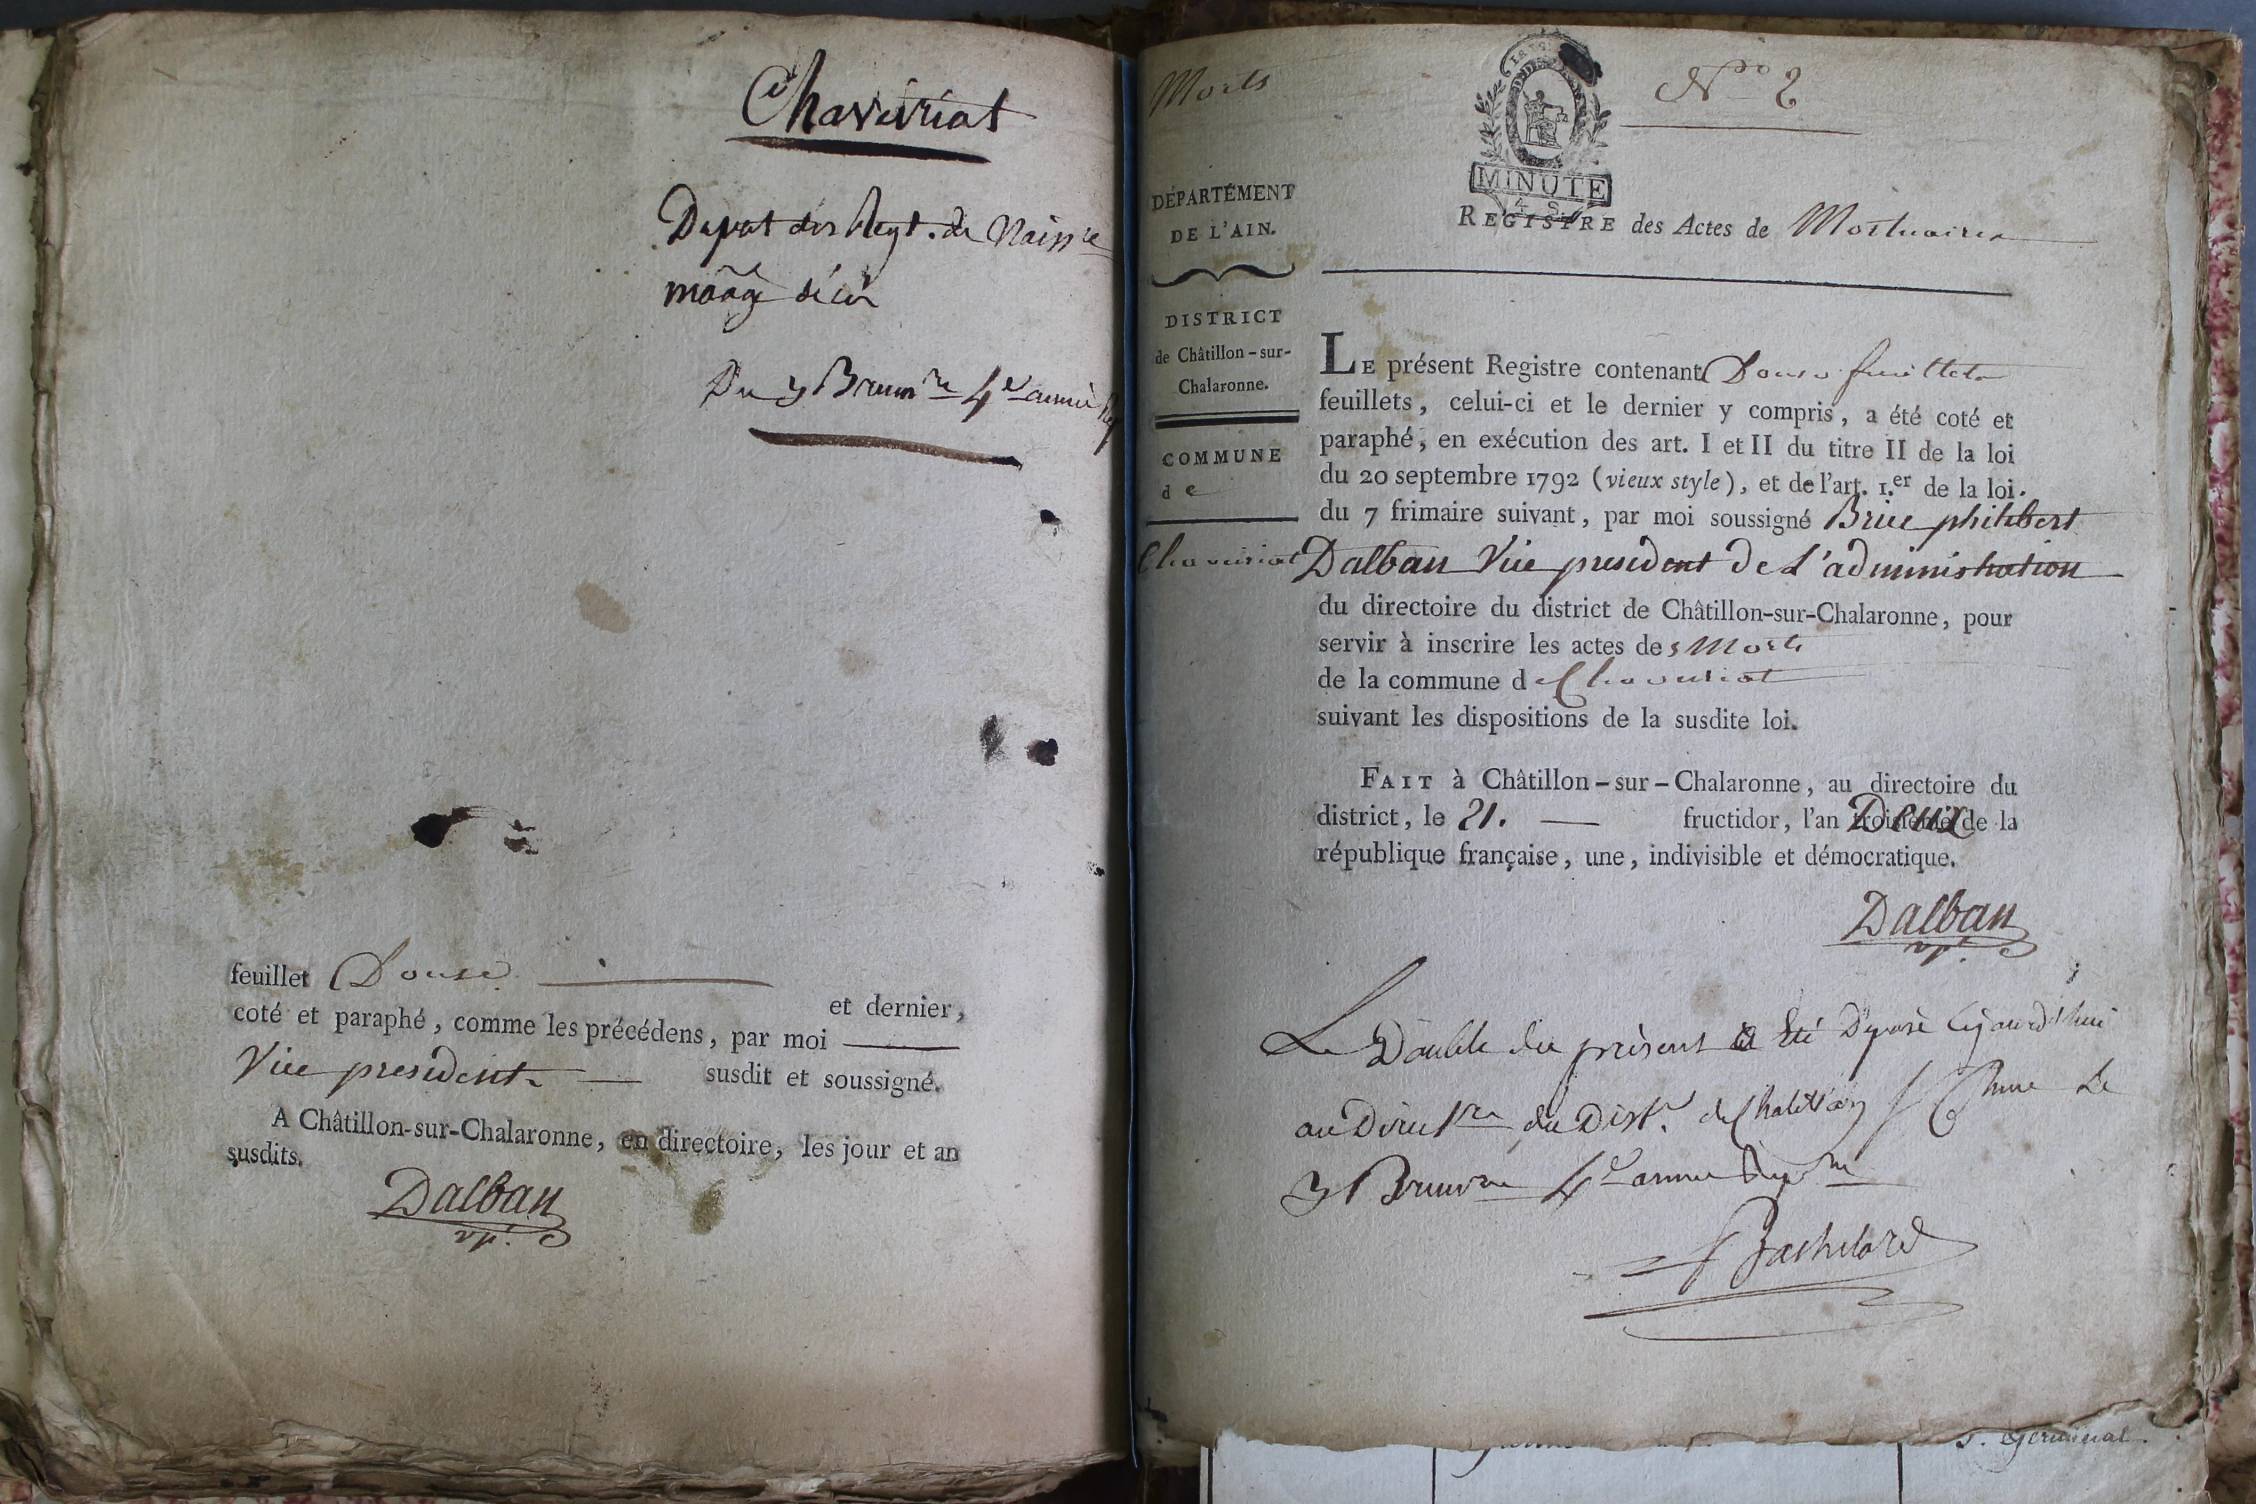 Chaveiriat
Depot des Regt. de Naissce
maage décès
Du y Brumre 4e année
feuillet Douse et dernier,
coté et paraphé, comme les précédens, par moi
Vice president susdit et soussigné.
A Châtillon-sur-Chalaronne, en directoire, les jour et an
susdits.
Dalban
vpt.
Morts
No 2
MINUTE
4 S
DÉPARTÉMENT
DE L'AIN.
REGISTRE des Actes de Mortuaires
DISTRICT
de Châtillon-sur-
Chalaronne.
COMMUNE
de
Chaveiriat
LE présent Registre contenant Douse feuillets
feuillets, celui-ci et le dernier y compris, a été coté et
paraphé, en exécution des art. I et II du titre II de la loi
du 20 septembre 1792 (vieux style), et de l'art. 1.er de la loi
du 7 frimaire suivant, par moi soussigné Brice philibert
Dalban Vice president de L'administration
du directoire du district de Châtillon-sur-Chalaronne, pour
servir à inscrire les actes des Morts
de la commune de Chaveiriat
suivant les dispositions de la susdite loi.
FAIT à Châtillon-sur-Chalaronne, au directoire du
district, le 21. fructidor, l'an Deux de la
république française, une, indivisible et démocratique.
Dalban
vpt.
Le Double du présent a été Déposé cejourd'hui
au Directre du Distt. de Chatillon
y Brumre 4e année
Bachelard
5. Germinal.